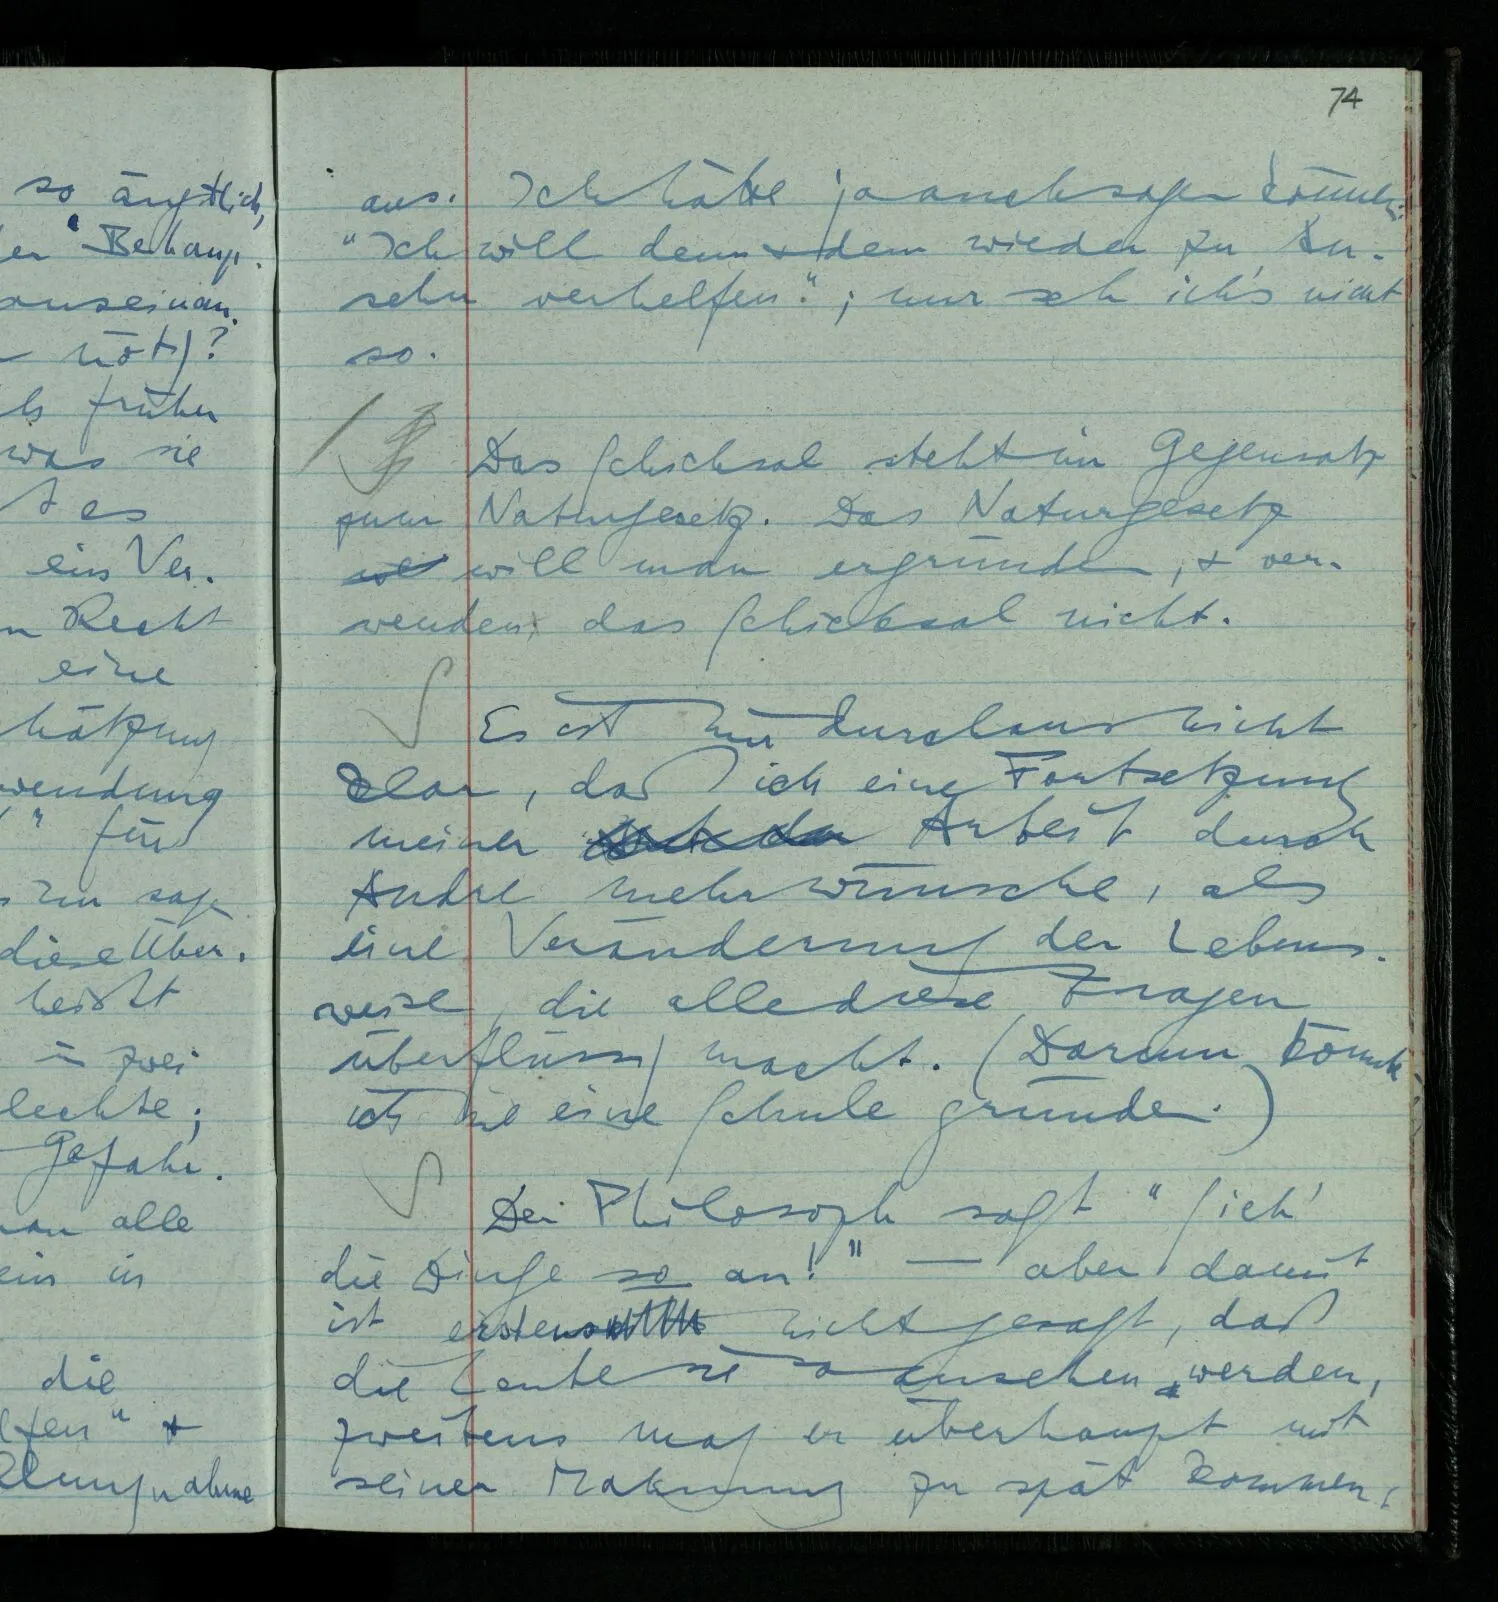 so ängstlich,
er Behaup.
auseinan.
nötig?
ls früher
was sie
t es
ein Ver.
n Recht
eine
hätzung
wendung
" für
zu sagen
diese Über.
heißt
in zwei
lechte;
Gefahr.
man alle
ein in
die
lfen" &
llungnahme
74
aus. Ich hätte ja auch sagen können:
"Ich will dem & dem wieder zu An-
sehn verhelfen."; nur seh ich's nicht
so.
Das Schicksal steht im Gegensatz
zum Naturgesetz. Das Naturgesetz
will man ergründen, & ver-
wenden, das Schicksal nicht.
Es ist mir durchaus nicht
klar, daß ich eine Fortsetzung
meiner Arbeit durch
Andre mehr wünsche, als
eine Veränderung der Lebens-
weise, die alle diese Fragen
überflüssig macht. (Darum könnte
ich nie eine Schule gründen.)
Der Philosoph sagt "Sieh'
die Dinge so an!" — aber damit
ist erstens nicht gesagt, daß
die Leute sie so ansehen werden,
zweitens mag er überhaupt mit
seiner Mahnung zu spät kommen,